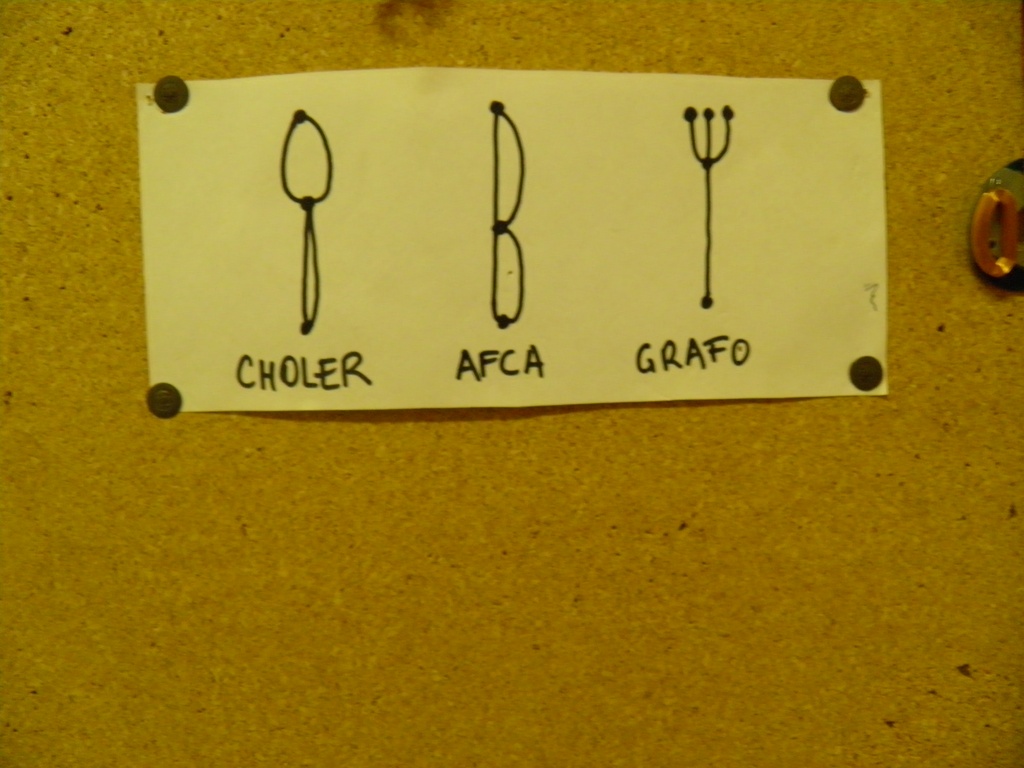 CHOLER AFCA GRAFO